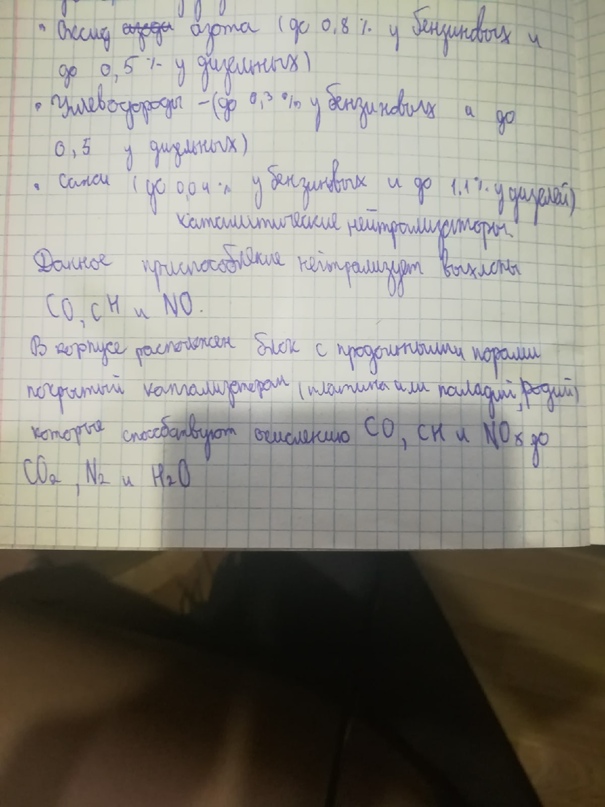 • Оксид азота (до 0,8% у бензиновых и
до 0,5% у дизельных)
• Углеводороды - (до 0,3% у бензиновых и до
0,5 у дизельных)
• Сажи (до 0,04% у бензиновых и до 1.1% у дизелей)
каталитические нейтрализаторы.
Данное приспособление нейтрализует выхлопы
CO, CH и NO.
В корпусе расположен блок с продольными порами
покрытый катализатором (платина или паладий, родий)
которые способствуют окислению CO, CH и NOx до
CO2, N2 и H2O